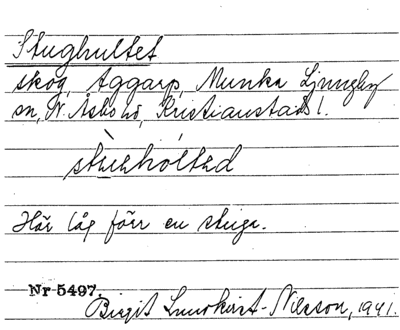 Stughultet
skog, Aggarp, Munka Ljungby
sn, N. Åsbo hd, Kristianstads l.
Här låg förr en stuga.
Nr 5497.
Birgit Lundkvist-Nilsson, 1941.